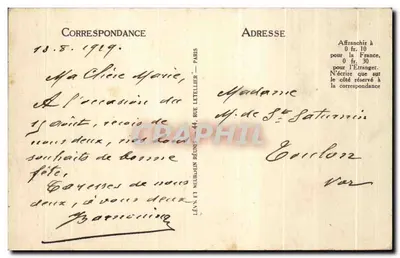 CORRESPONDANCE
ADRESSE
Affranchir à
0 fr. 10
pour la France,
0 fr. 30
pour l'Etranger.
N'écrire que sur
le côté réservé à
la correspondance
13.8.1929.
Ma Chère Marie,
A l'occasion du
15 Août, reçois de
nous deux, nos bons
souhaits de bonne
fête.
Caresses de nous
deux, à vous deux
LÉVY ET NEURDEIN RÉUNIS 44, RUE LETELLIER - PARIS
Madame
M. de St Saturnin
Toulon
Var